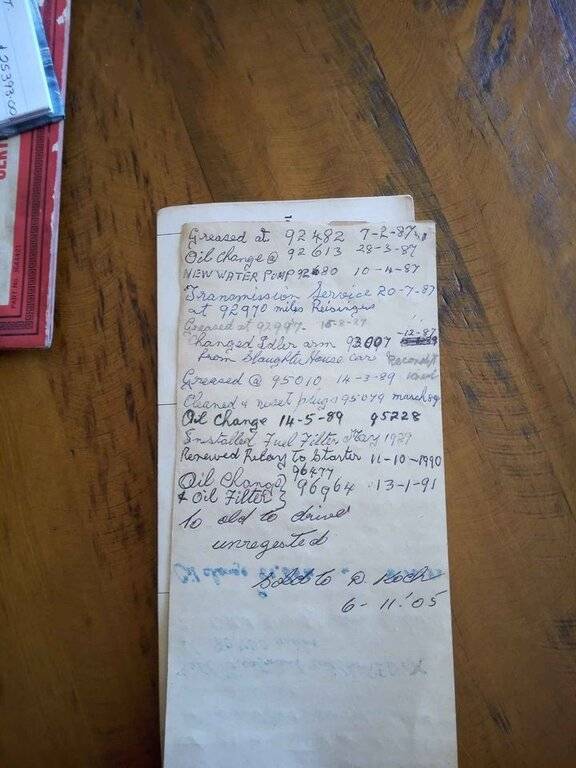 $25393.00
PART No. 3644421
Greased at 92482 7-2-87
Oil Change @ 92613 28-3-87
NEW WATER PUMP 92680 10-4-87
Transmission Service 20-7-87
at 92970 miles Reisingers
Greased at 92997
Changed Idler arm 93007 -12-87
from Slaughter House car
Greased @ 95010 14-3-89
Cleaned & reset plugs 95079 march 89
Oil Change 14-5-89 95228
Installed Fuel Filter May
Renewed Relay To Starter 11-10-1990
96477
Oil Change } 96964 13-1-91
& Oil Filter }
To old to drive
unregested
Sold to D. Koch
6-11-05